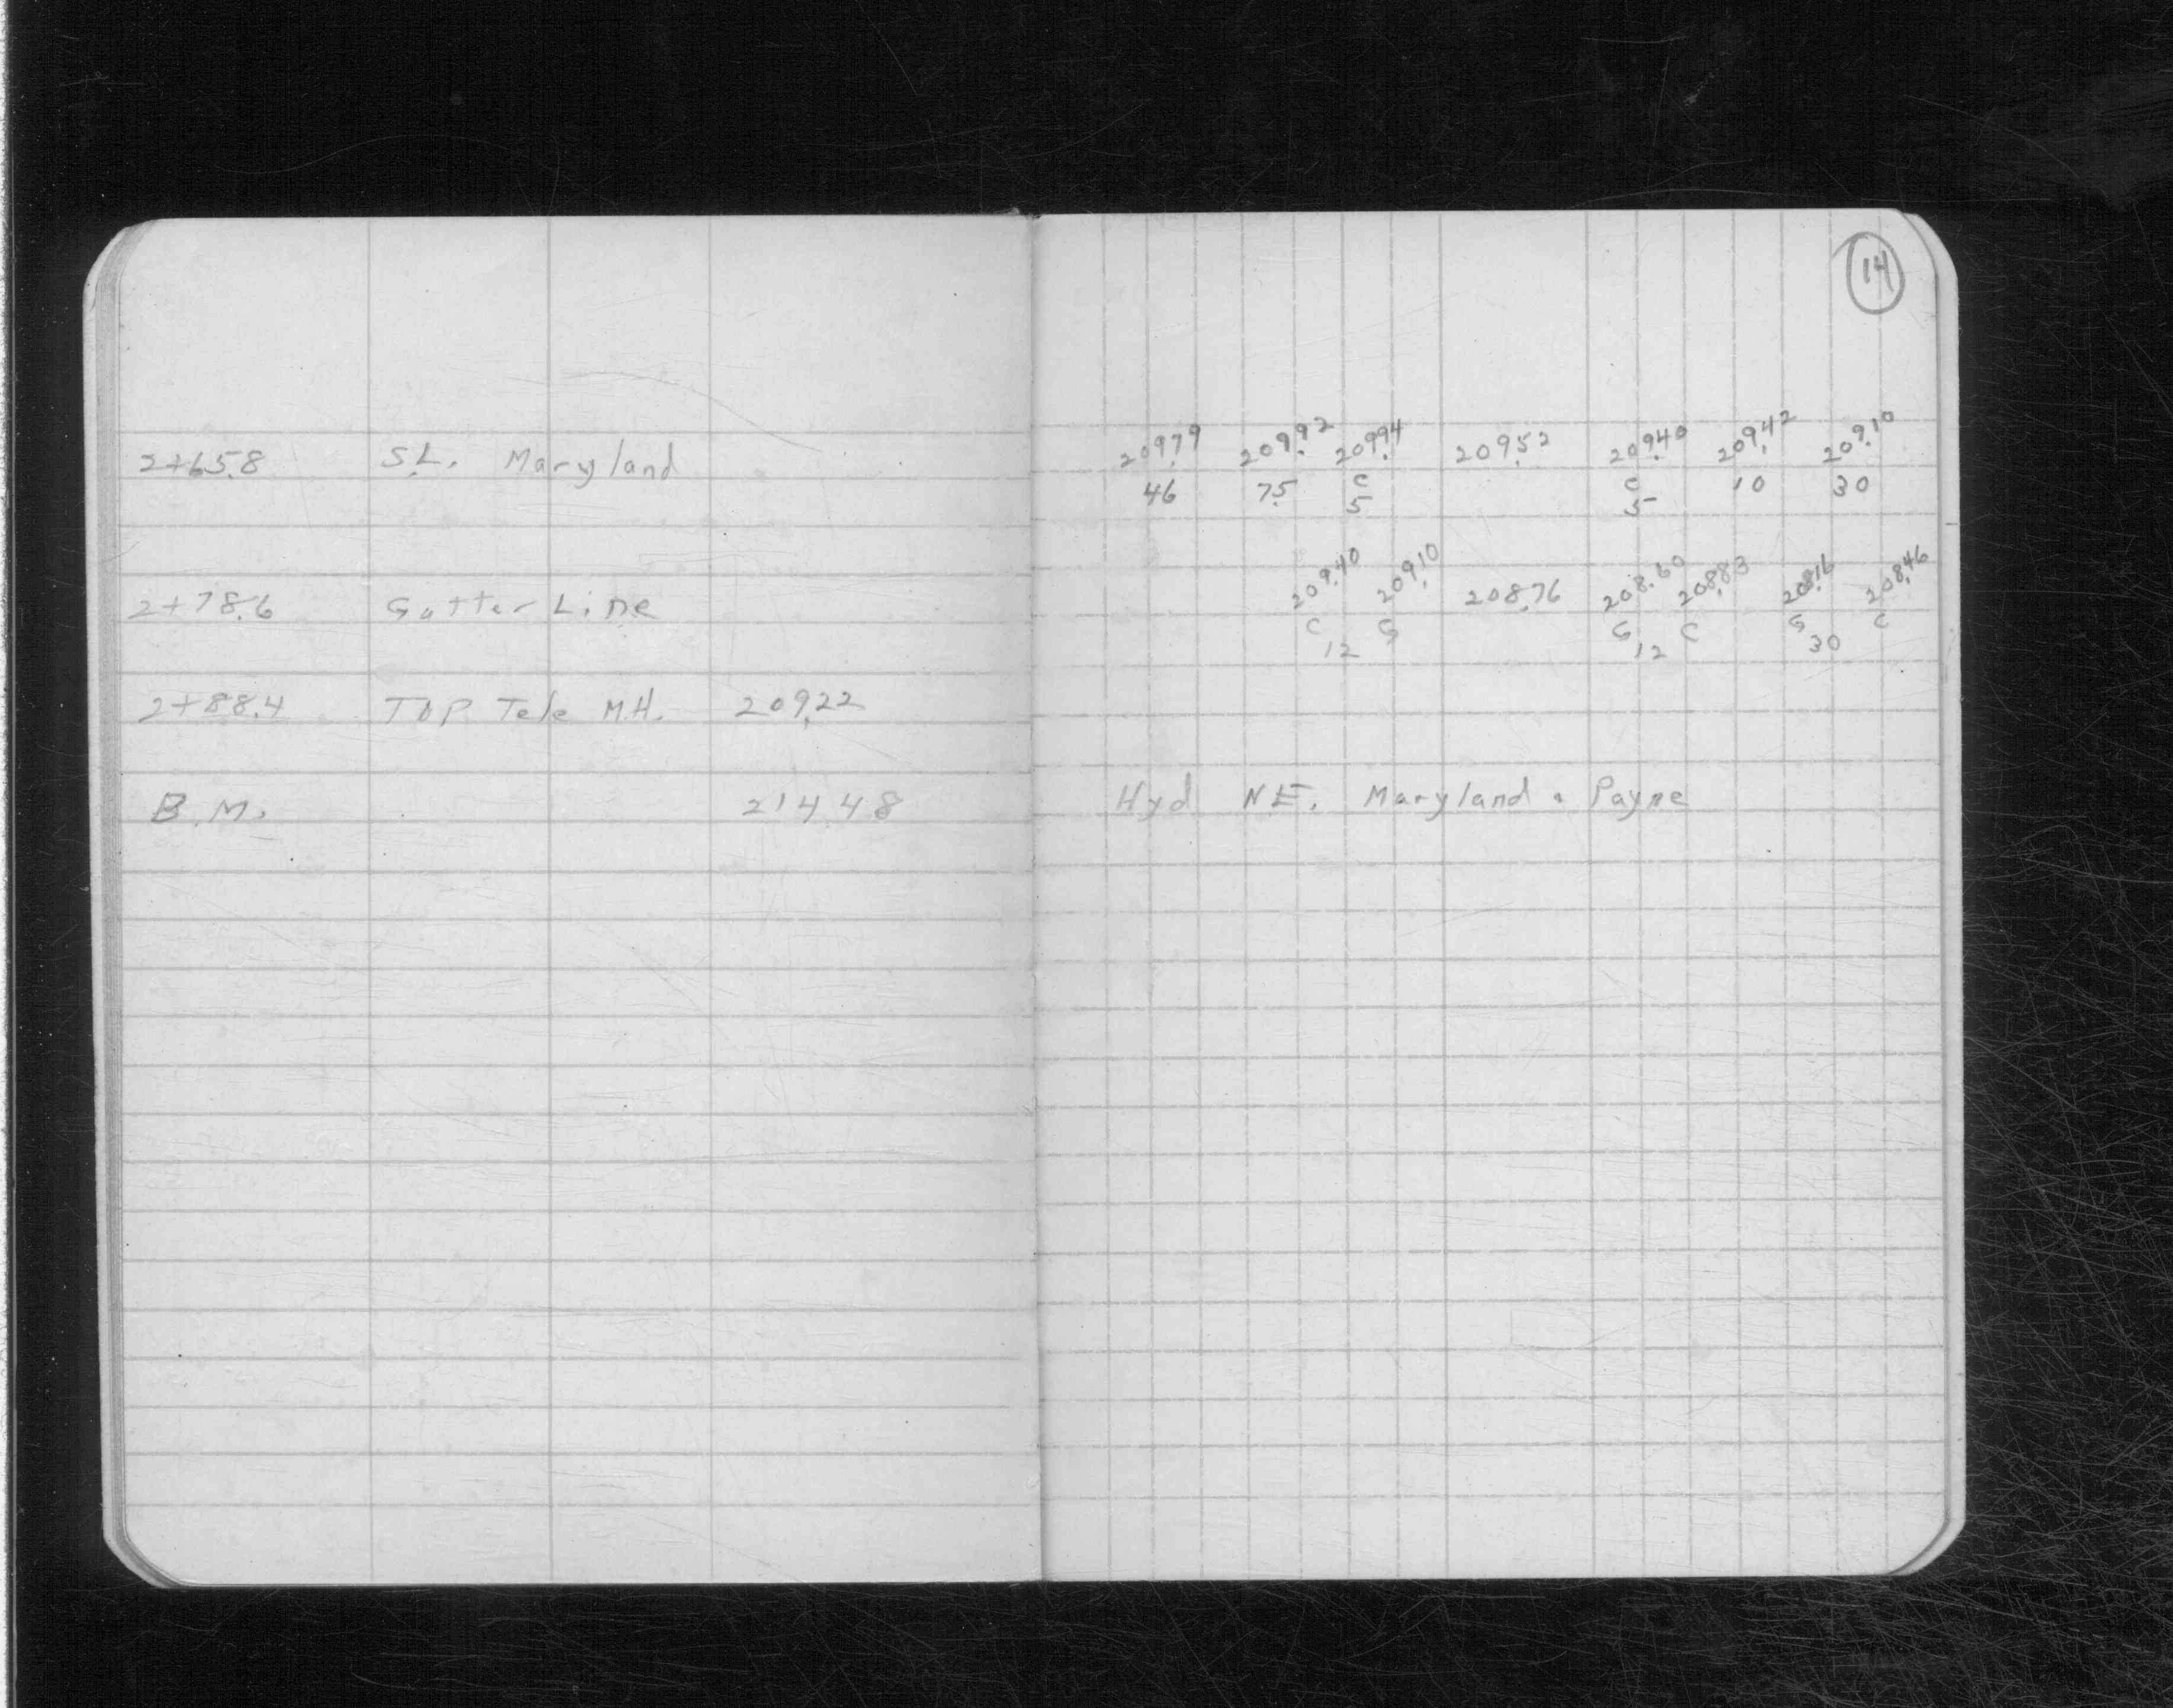 14
2+65.8 S.L. Maryland 209.79 209.92 209.94 209.52 209.40 209.42 209.10
46 7.5 C C 10 30
5 5
2+78.6 Gutter Line 209.40 209.10 208.76 208.60 208.83 208.16 208.46
C G G C G C
12 12 30
2+88.4 TOP Tele M.H. 209.22
B.M. 214.48 Hyd NE. Maryland & Payne